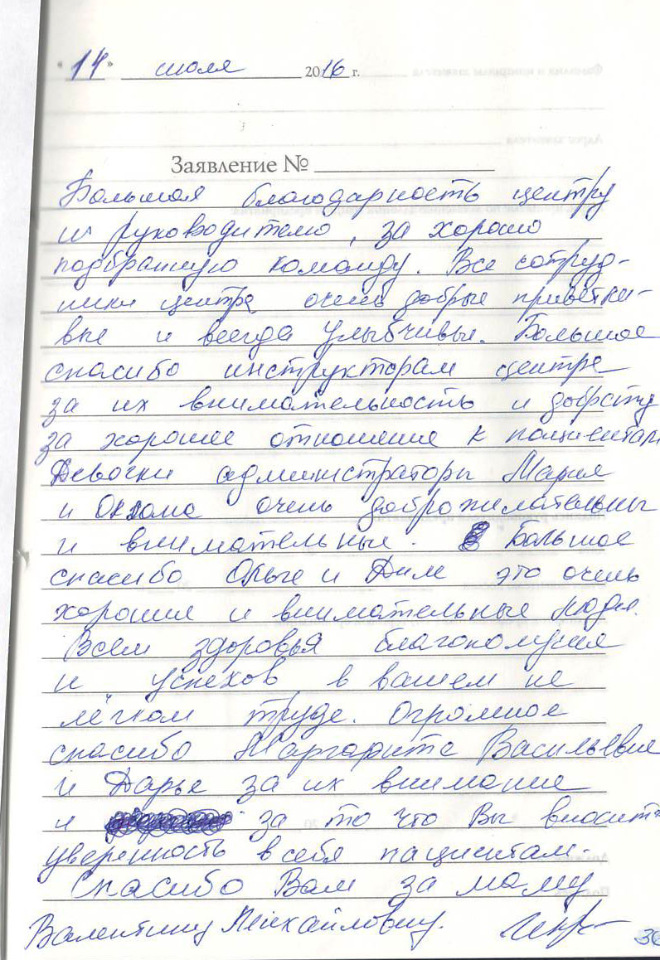 "14" июля 2016 г.
Заявление №
Большая благодарность центру
и руководителю, за хорошо
подбранную команду. Все сотруд-
ники центра очень добрые приветли-
вые и всегда улыбчивы. Большое
спасибо инструкторам центра
за их внимательность и доброту
за хорошее отношение к пациентам
Девочки администраторы Мария
и Оксана очень доброжелательны
и внимательные. Большое
спасибо Ольге и Диме это очень
хорошие и внимательные люди.
Всем здоровья благополучия
и успехов в вашем не
лёгком труде. Огромное
спасибо Маргарите Васильевне
и Дарье за их внимание
и за то что Вы вносите
уверенность в себя пациентам.
Спасибо Вам за маму
Валентину Михайловну.